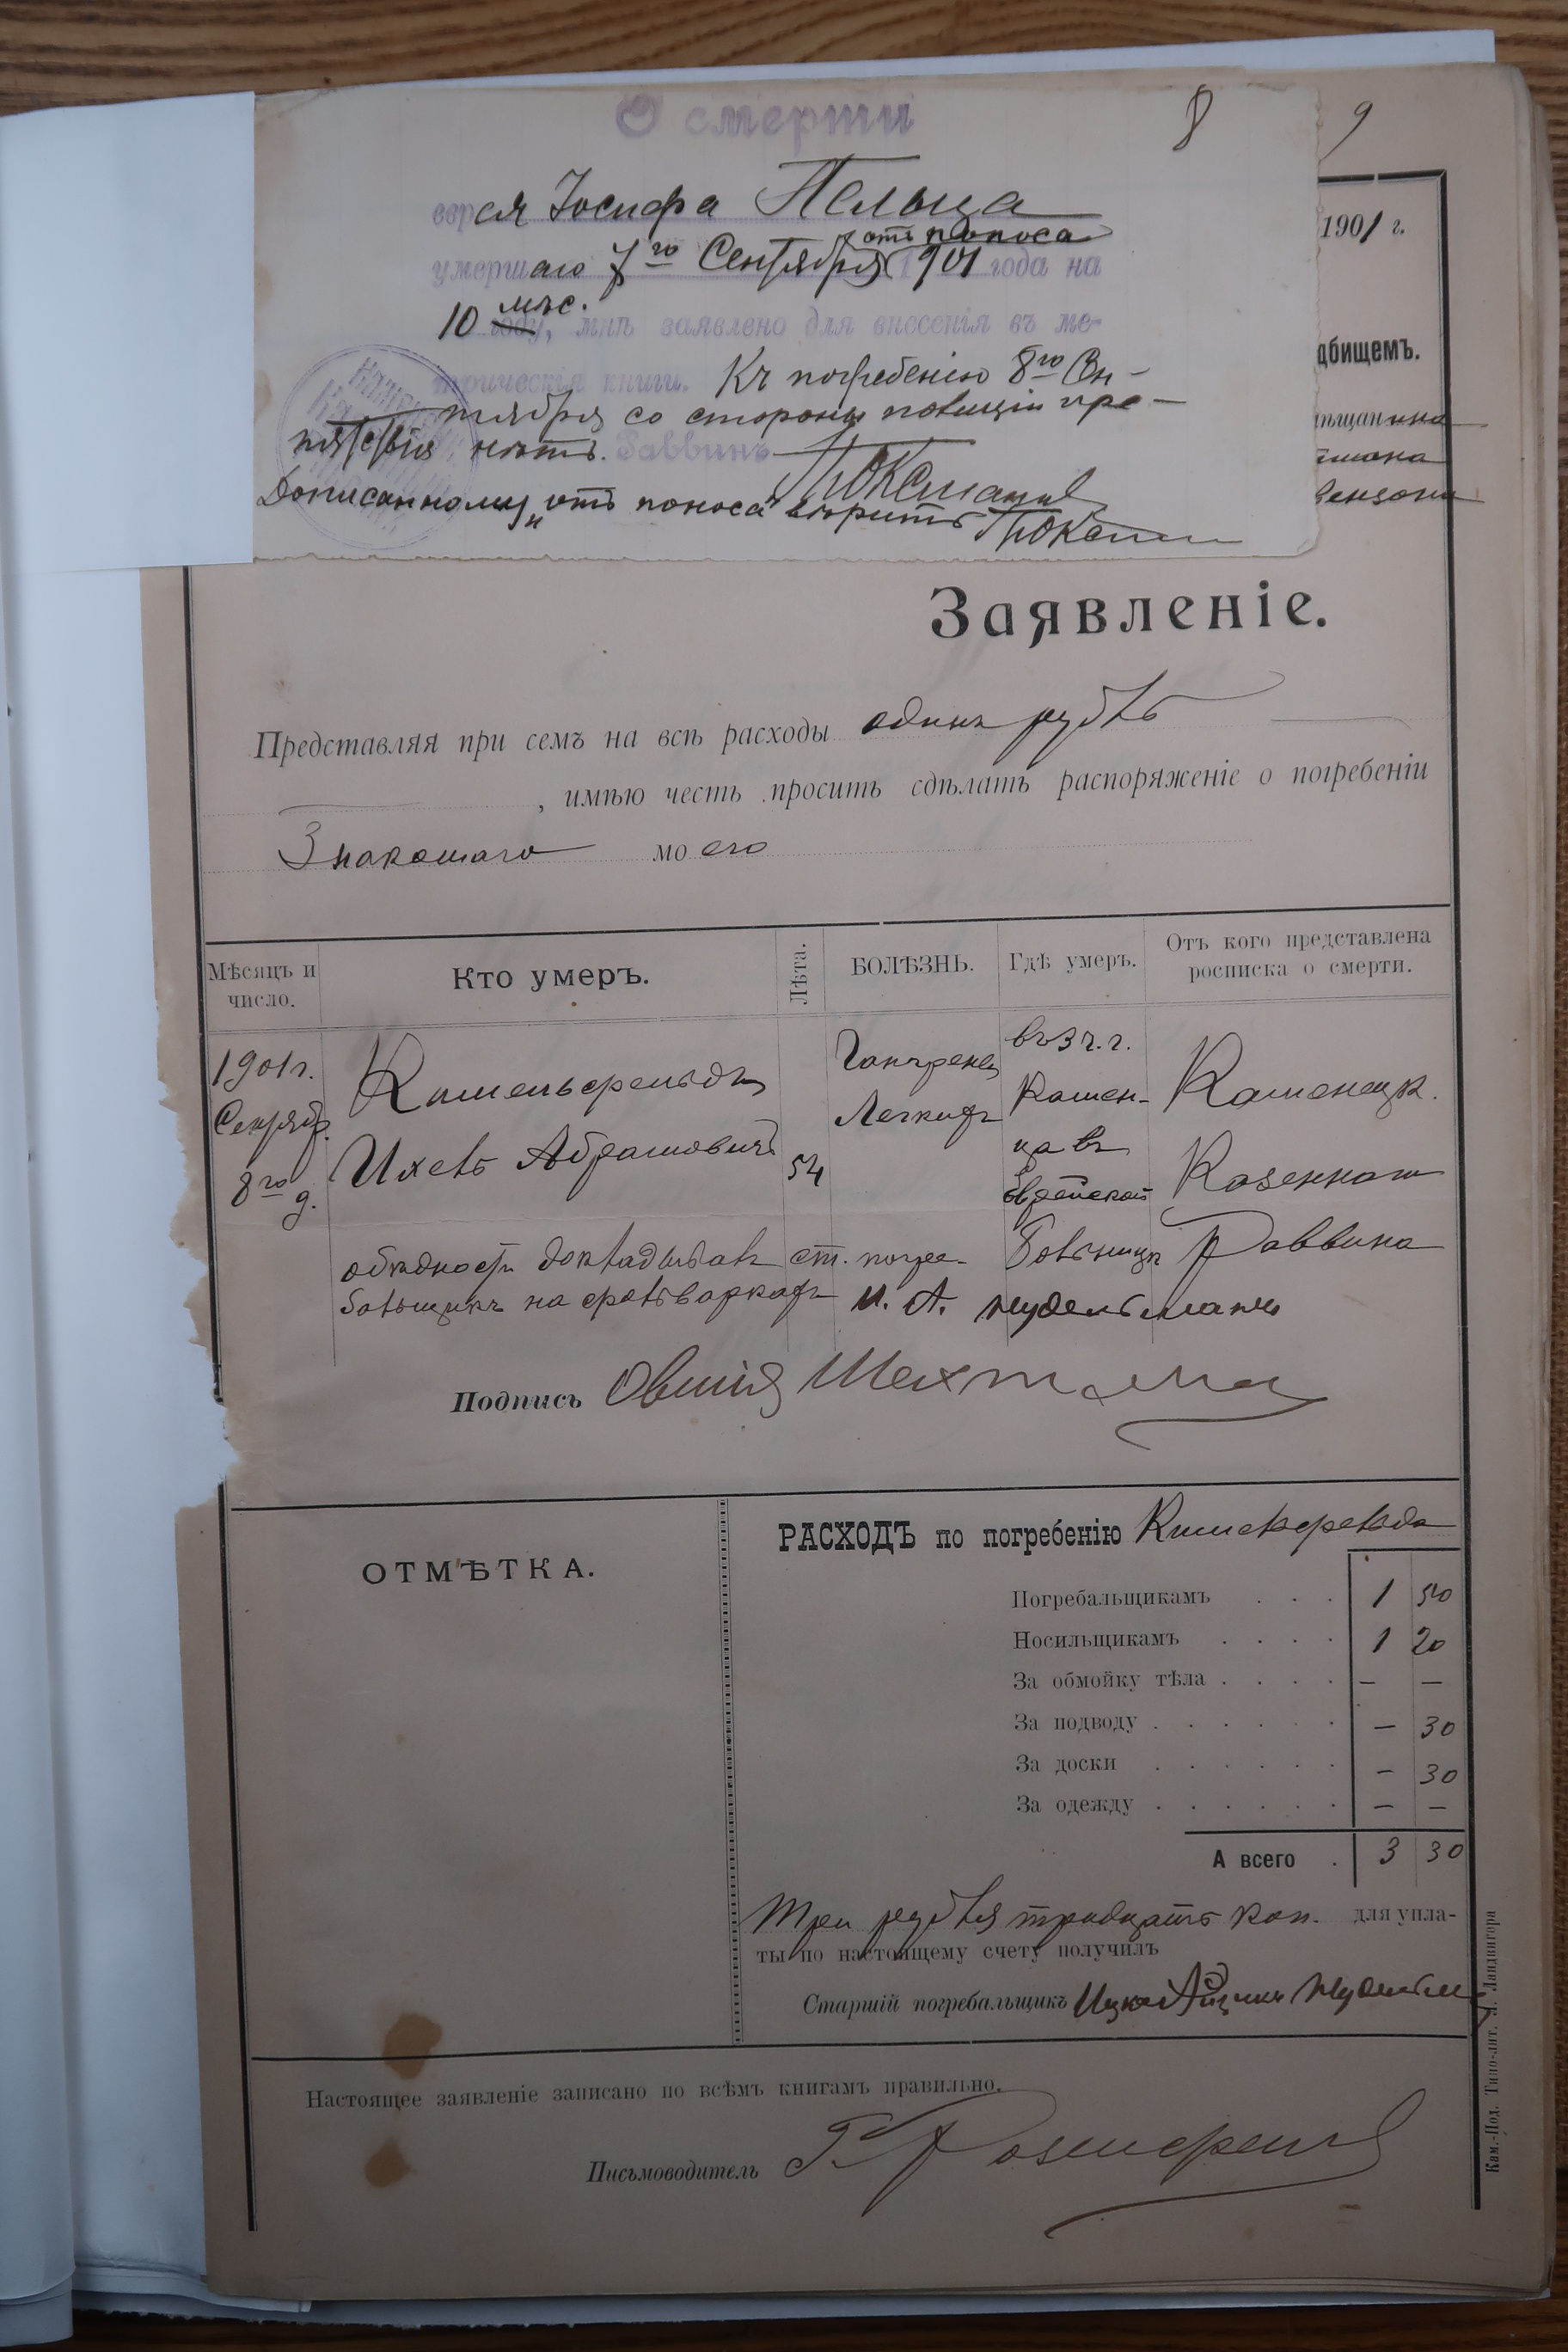 О смерти
8
9
еврея Іосифа Пельца
отъ поноса
умершаго 7го Сентября 1901 года на
10 мѣс. году, мнѣ заявлено для внесенія въ ме-
трическія книги. Къ погребенію 8го Сен-
тября со стороны полиціи пре-
пятствія нѣтъ. Раввинъ
Дописанному „отъ поноса" вѣрить
1901 г.
дбищемъ.
Заявленіе.
Представляя при семъ на всѣ расходы одинъ рубль
, имѣю честь просить сдѣлать распоряженіе о погребеніи
Знакомаго моего
Мѣсяцъ и число.
Кто умеръ.
Лѣта.
БОЛѢЗНЬ.
Гдѣ умеръ.
Отъ кого представлена росписка о смерти.
1901 г.
Сентяб.
8го д.
Кишельфельдъ
Ихель Абрамовичъ
54
Гангрена
Легкихъ
въ г.
Камен-
ца въ
Еврейской
Больницѣ
Каменецк.
Казеннаго
Раввина
о бѣдности докладывалъ ст. погре-
бальщикъ И. А. Нудельманъ
Подпись Овшія Шехтман
ОТМѢТКА.
РАСХОДЪ по погребенію Кишельфельда
Погребальщикамъ . . . 1 50
Носильщикамъ . . . . 1 20
За обмойку тѣла . . . . — —
За подводу . . . . . . — 30
За доски . . . . . . — 30
За одежду . . . . . . — —
А всего . 3 30
Три рубля тридцать коп. для упла-
ты по настоящему счету получилъ
Старшій погребальщикъ Ицко Айзикъ Нудельм
Настоящее заявленіе записано по всѣмъ книгамъ правильно.
Письмоводитель
Кам.-Под. Типо-лит. Ландвигера